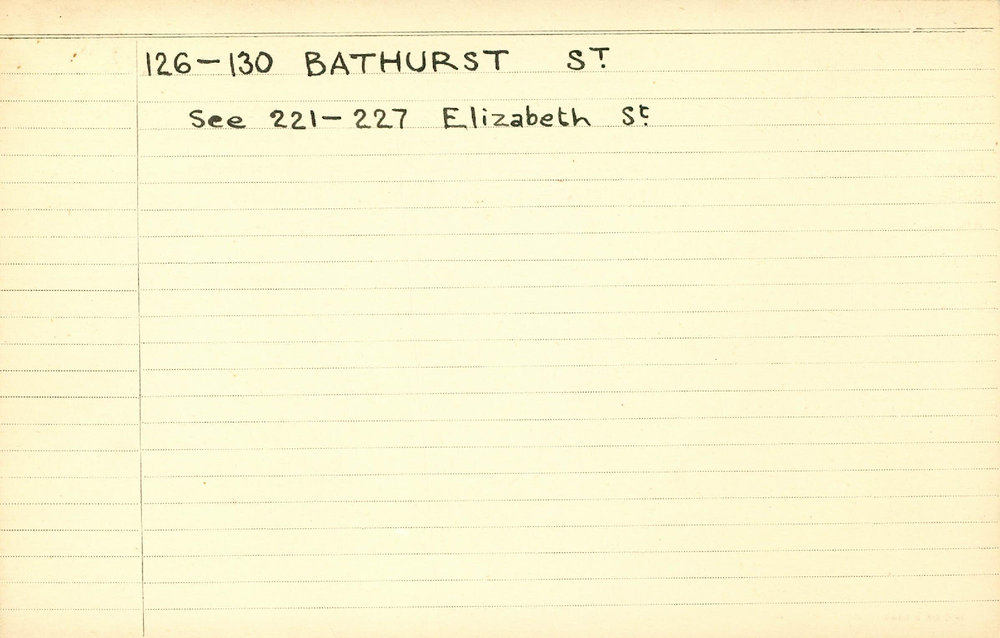 126-130 BATHURST ST.
See 221-227 Elizabeth St.